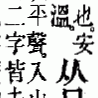 也。安
溫。
从
平聲入
二字皆土